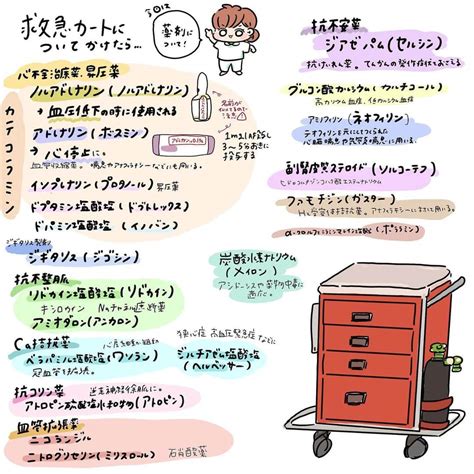 救急カートに
ついてかけたら…
今日は
薬剤に
ついて!
心不全治療薬、昇圧薬
カテコラミン
ノルアドレナリン(ノルアドレナリン)
→血圧低下の時に使用される
アドレナリン(ボスミン)
→心停止に。
名前が
似ているので
注意
1mlをIVし
3〜5分おきに
投与する
イソプレナリン(プロタノール) 昇圧薬
ドブタミン塩酸塩(ドブトレックス)
ドパミン塩酸塩(イノバン)
ジギタリス製剤
ジギタリス(ジゴシン)
抗不整脈
リドカイン塩酸塩(リドカイン)
キシロカイン Naチャネル遮断薬
アミオダロン(アンカロン)
Ca拮抗薬
ベラパミル塩酸塩(ワソラン)
狭心症 高血圧緊急症などに
ジルチアゼム塩酸塩
(ヘルベッサー)
抗コリン薬
迷走神経徐脈に。
アトロピン硫酸塩水和物(アトロピン)
血管拡張薬
ニコランジル
ニトログリセリン(ミリスロール) 硝酸薬
炭酸水素ナトリウム
(メイロン)
アシドーシスや薬物中毒に
適応。
抗不安薬
ジアゼパム(セルシン)
抗けいれん薬。てんかんの発作症状をおさえる
グルコン酸カルシウム(カルチコール)
高カリウム血症、低カルシウム血症
アミノフィリン(ネオフィリン)
テオフィリンを元にしてつくられた
心臓喘息や気管支喘息に用いる。
副腎皮質ステロイド(ソルコーテフ)
ヒドロコルチゾンコハク酸エステルナトリウム
ファモチジン(ガスター)
H₂受容体拮抗薬。アナフィラキシーにも用いる。